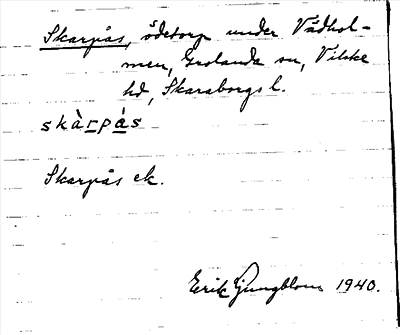 Skarpås, ödetorp under Vådhol-
men, Grolanda sn, Vilske
hd, Skaraborgs l.
skàrpás
Skarpås ek.
Erik Ljungblom 1940.